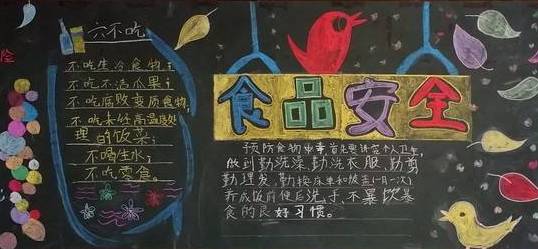 险
六不吃
不吃生冷食物;
不吃不洁瓜果;
不吃腐败变质食物,
不吃未经高温处
理的饭菜;
不喝生水;
不吃零食。
食品安全
预防食物中毒首先要讲究个人卫生,
做到勤洗澡、勤洗衣服、勤剪
勤理发,勤换床单和被盖(一月一次)
养成饭前便后洗手、不暴饮暴
食的良好习惯。